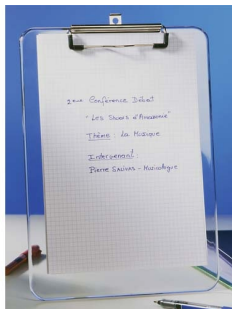 2ème Conférence Débat
"Les Soirées d'Anasonie"
Thème : La Musique
Intervenant :
Pierre Salivas - Musicologue